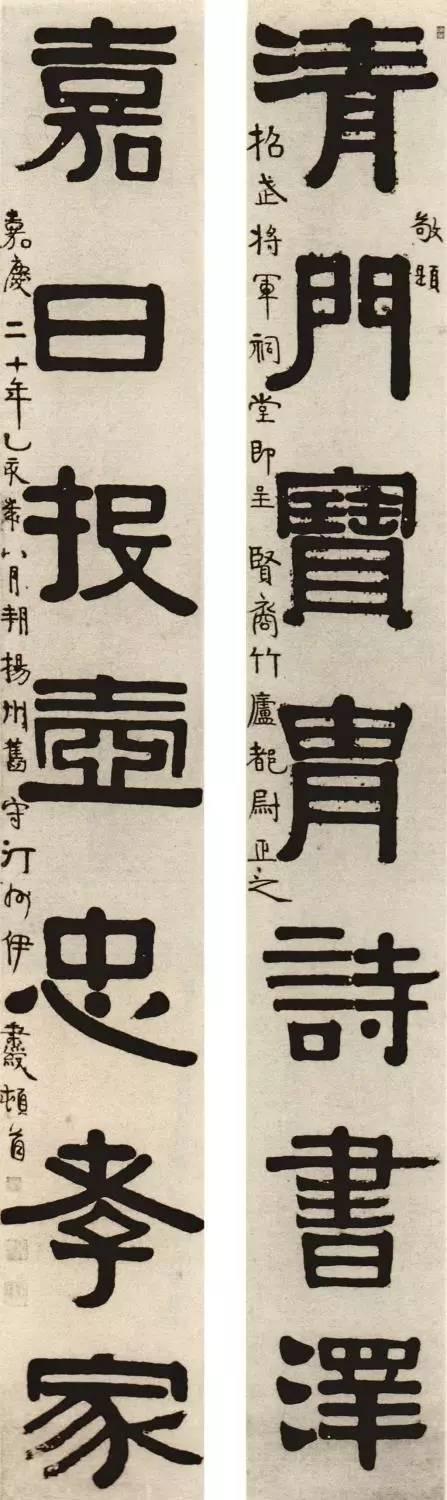 清門寶冑詩書澤
敬題
招武將軍祠堂即呈賢裔竹廬都尉正之
嘉日投壺忠孝家
嘉慶二十年乙亥歲八月朔揚州舊守汀州伊秉綬頓首